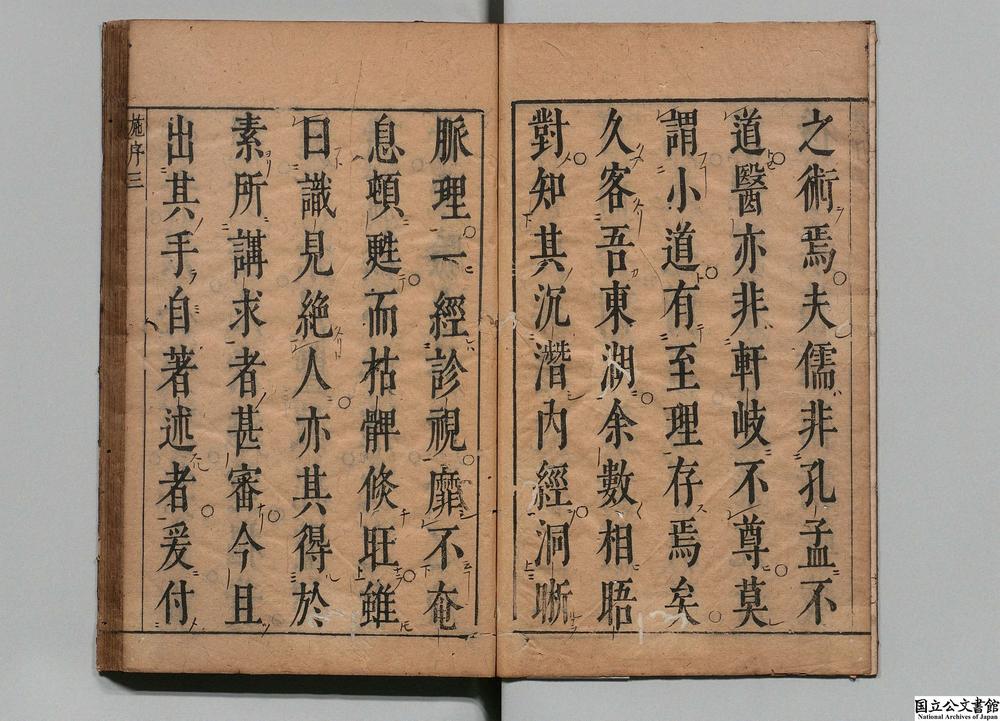 之術焉夫儒非孔孟不
道醫亦非軒岐不尊莫
謂小道有至理存焉矣
久客吾東湖余數相晤
對知其沉潛內經洞晰
脈理一經診視靡不奄
息頓甦而枯髀倏旺雖
曰識見絶人亦其得於
素所講求者甚審今且
出其手自著述者爰付
施序 三
国立公文書館
National Archives of Japan